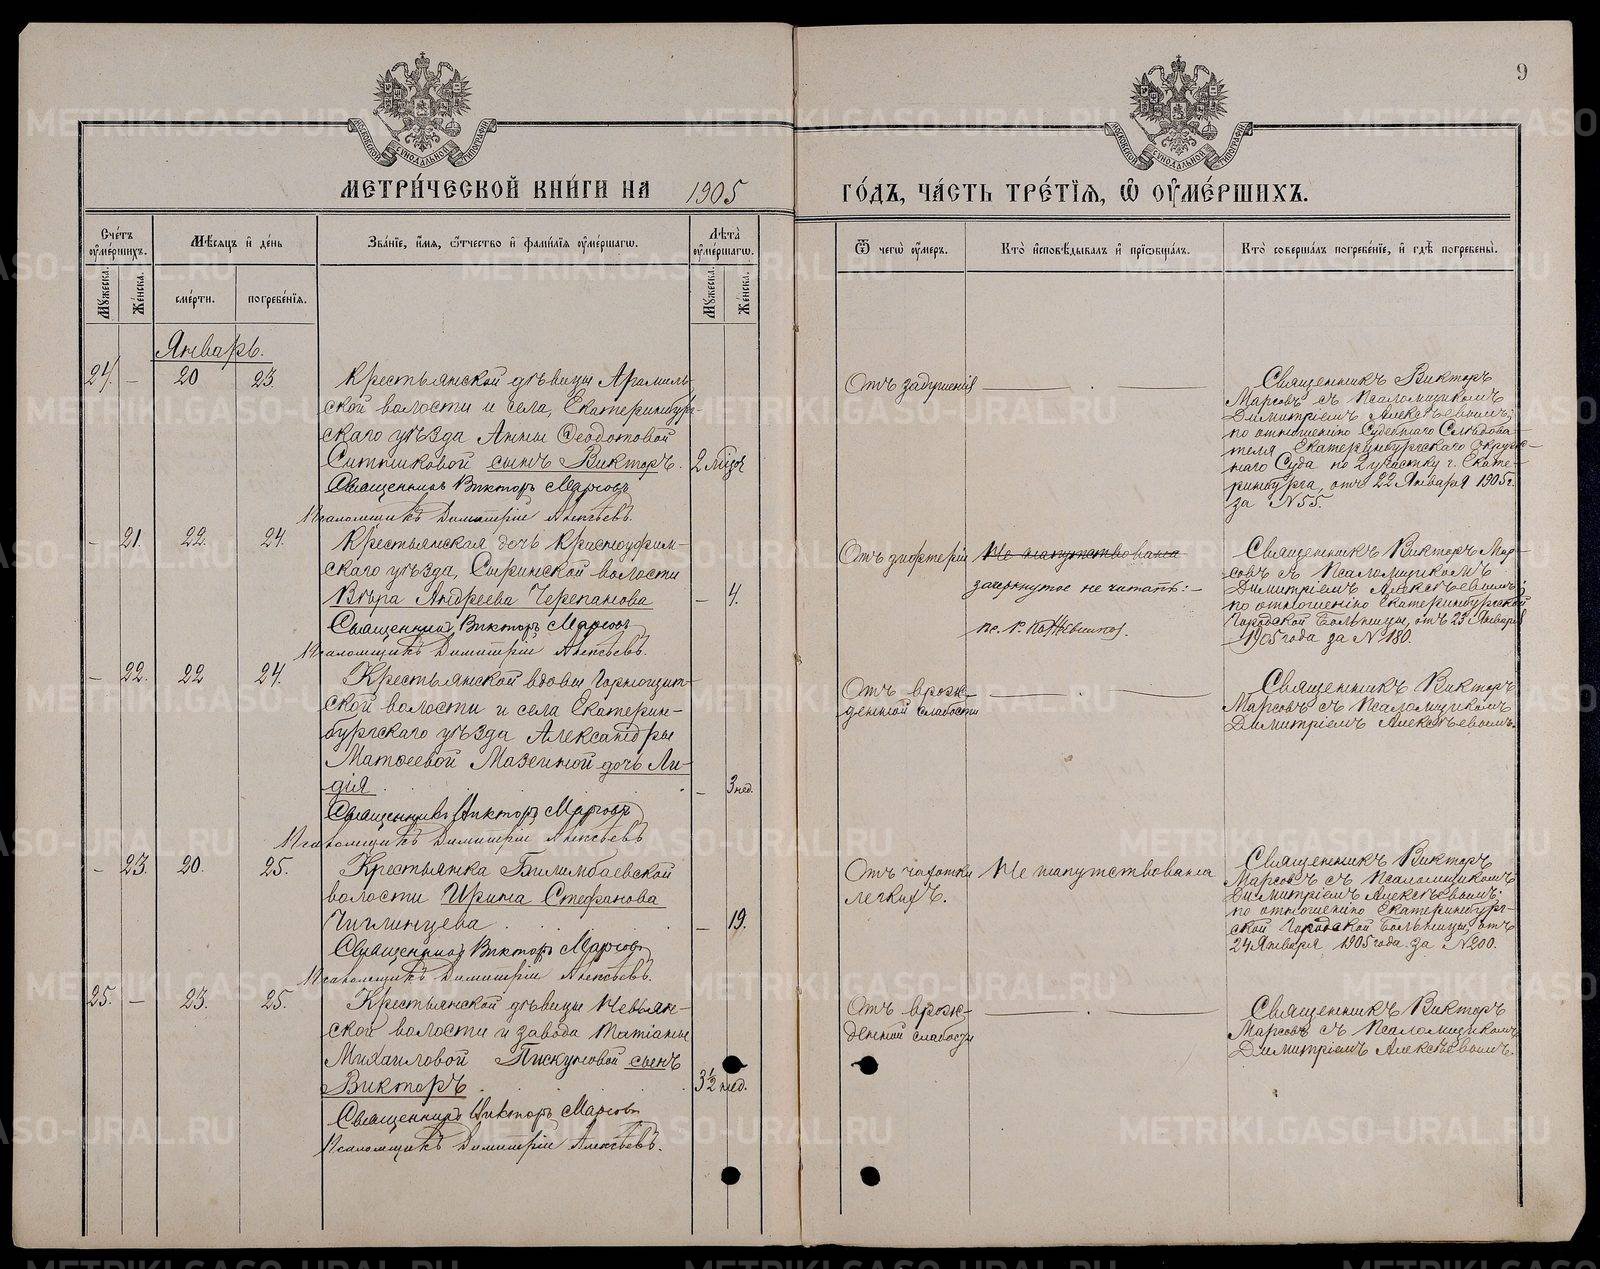 9
МЕТРИ́ЧЕСКОЙ КНИ́ГИ НА 1905 ГО́ДЪ, ЧА́СТЬ ТРЕ́ТЇѦ, Ѡ҆ ОУ҆МЕ́РШИХЪ.
Сче́тъ оу҆ме́ршихъ.
Мꙋ́жеска.
Же́нска.
Мѣ́сѧцъ и҆ де́нь
сме́рти.
погребе́нїѧ.
Зва́нїе, и҆́мѧ, ѻ҆́тчество и҆ фами́лїѧ оу҆ме́ршагѡ.
Лѣ́та оу҆ме́ршагѡ.
Мꙋ́жеска.
Же́нска.
Ѿ чегѡ̀ оу҆́меръ.
Кто̀ и҆сповѣ́дывалъ и҆ прїѡбща́лъ.
Кто̀ соверша́лъ погребе́нїе, и҆ гдѣ̀ погребены̀.
Январь.
24. — 20 23
Крестьянской дѣвицы Арамиль-
ской волости и села, Екатеринбург-
скаго уѣзда Анны Ѳеодотовой
Ситниковой сынъ Викторъ. 2 мѣсяц
Священникъ Викторъ Марсовъ
Псаломщикъ Димитрій Алексѣевъ.
Отъ задушенія
Священникъ Викторъ
Марсовъ съ Псаломщикомъ
Димитріемъ Алексѣевымъ;
по отношенію Судебнаго Слѣдова-
теля Екатеринбургскаго Окруж-
наго Суда по 2 участку г. Екате-
ринбурга, отъ 22 Января 1905 г.
за № 55.
— 21. 22. 24.
Крестьянская дочь Красноуфим-
скаго уѣзда, Сыринской волости
Вѣра Андреева Черепанова — 4.
Священникъ Викторъ Марсовъ
Псаломщикъ Димитрій Алексѣевъ.
Отъ дифтеріи
Не напутствована
зачеркнутое не читать: —
Священникъ Викторъ Мар-
совъ съ Псаломщикомъ
Димитріемъ Алексѣевымъ;
по отношенію Екатеринбургской
Городской Больницы, отъ 23 Января
1905 года за № 180.
— 22. 22 24.
Крестьянской вдовы Горнощит-
ской волости и села Екатерин-
бургскаго уѣзда Александры
Матѳеевой Мазеиной дочь Ли-
дія — 3 нед.
Священникъ Викторъ Марсовъ
Псаломщикъ Димитрій Алексѣевъ
Отъ врож-
денной слабости
Священникъ Викторъ
Марсовъ съ Псаломщикомъ
Димитріемъ Алексѣевымъ.
— 23. 20. 25.
Крестьянка Билимбаевской
волости Ирина Стефанова
Чиглинцева — 19.
Священникъ Викторъ Марсовъ
Псаломщикъ Димитрій Алексѣевъ.
Отъ чахотки
легкихъ.
Не напутствована
Священникъ Викторъ
Марсовъ съ Псаломщикомъ
Димитріемъ Алексѣевымъ;
по отношенію Екатеринбург-
ской Городской Больницы, отъ
24 Января 1905 года за № 200.
25. — 23. 25.
Крестьянской дѣвицы Невьян-
ской волости и завода Татіаны
Михаиловой Пискуновой сынъ
Викторъ 3½ нед.
Священникъ Викторъ Марсовъ
Псаломщикъ Димитрій Алексѣевъ.
Отъ врож-
денной слабости
Священникъ Викторъ
Марсовъ съ Псаломщикомъ
Димитріемъ Алексѣевымъ.
METRIKI.GASO-URAL.RU